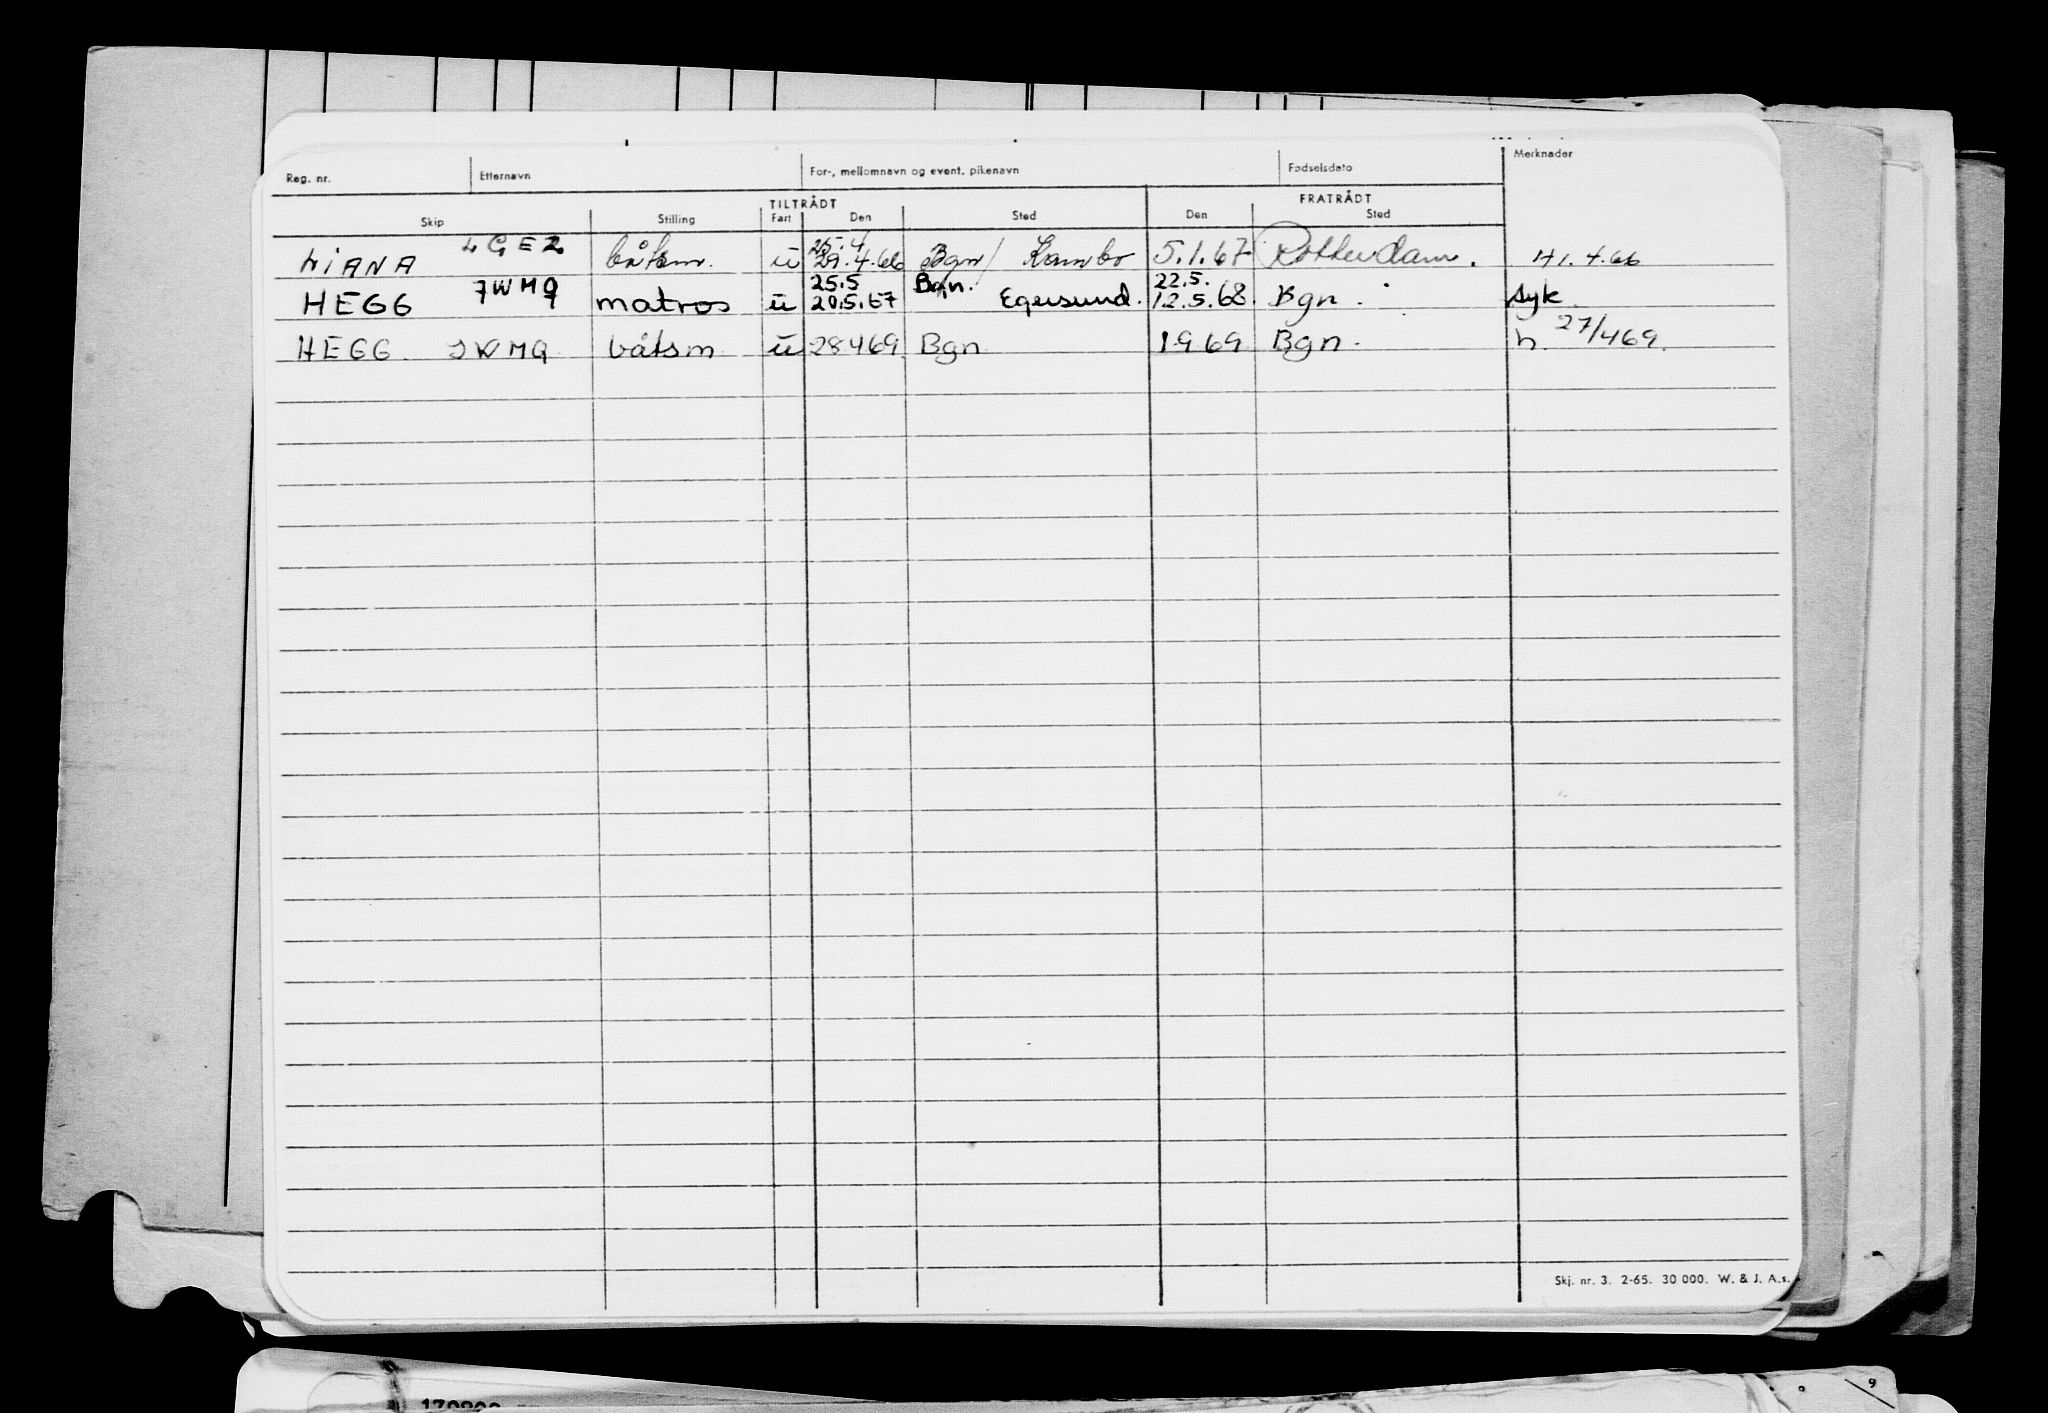 Reg. nr. Etternavn For-, mellomnavn og event. pikenavn Fødselsdato Merknader
TILTRÅDT FRATRÅDT
Skip Stilling Fart Den Sted Den Sted
LIANA LGEZ båtsm. u 25.4 29.4.66 Bgn/ Kambo 5.1.67 Rotterdam. H1.4.66
HEGG JWMQ matros u 25.5 20.5.67 Bgn. Egersund. 22.5. 12.5.68. Bgn. syk
HEGG. JWMQ båtsm u 28469 Bgn 1969 Bgn. h. 27/469.
Skj. nr. 3. 2-65. 30 000. W. & J. A.s.
9